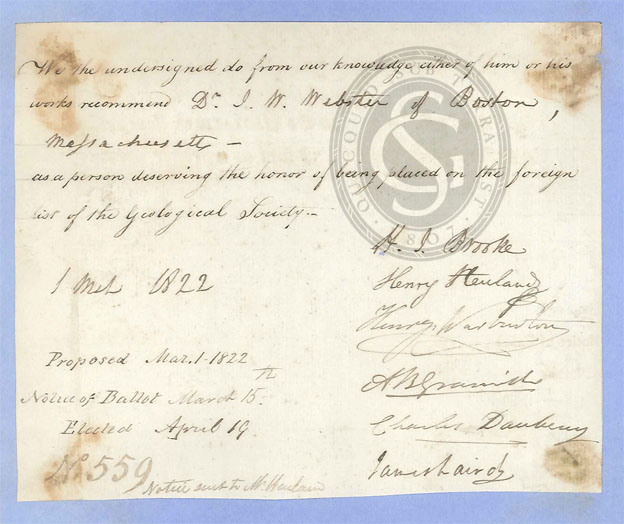 We the undersigned do from our knowledge either of him or his
works recommend Dr. J. W. Webster of Boston,
Massachusetts —
as a person deserving the honor of being placed on the foreign
list of the Geological Society.—
H. J. Brooke
1 Mch 1822
Henry Heuland
Henry Warburton
Proposed Mar. 1. 1822
Notice of Ballot March 15th.
A B Granville
Elected April 19
Charles Daubeny
James Laird
No. 559
Notice sent to Mr Heuland
QUICQUID SUB TERRA EST
LOND
GS